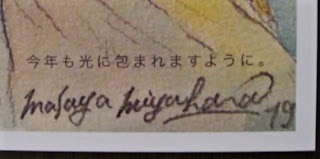 今年も光に包まれますように。
masaya miyahara '19